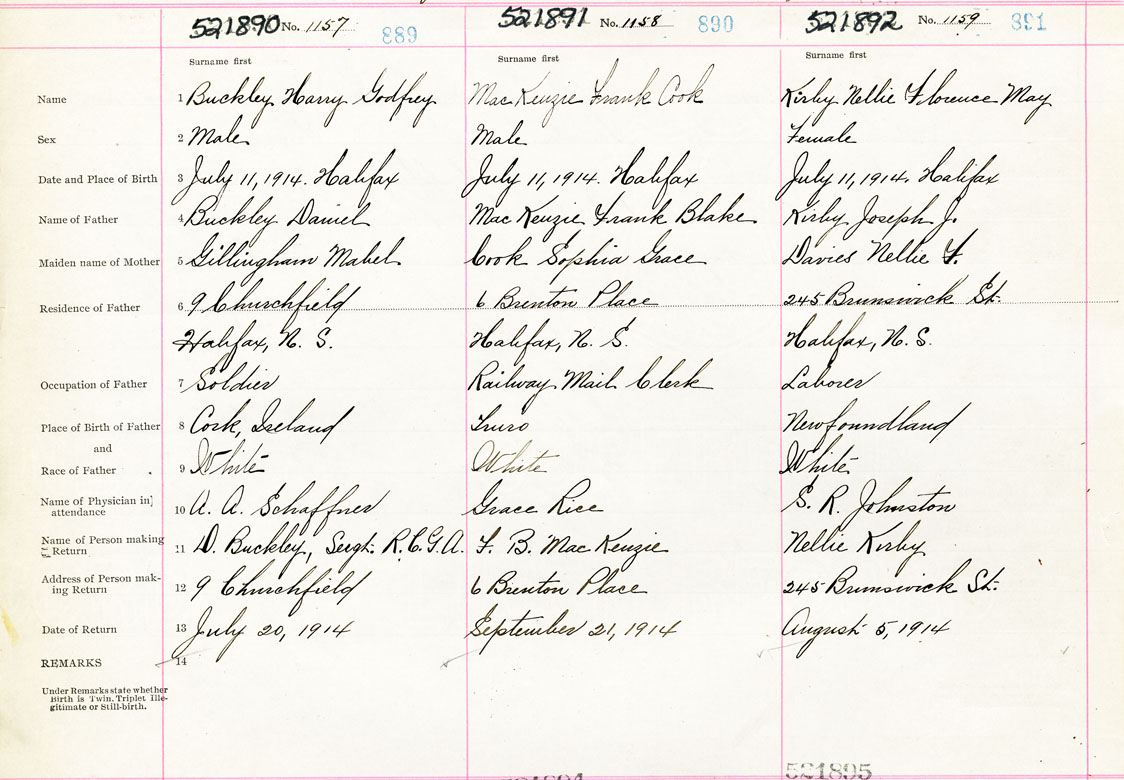 521890 No. 1157 889 521891 No. 1158 890 521892 No. 1159 891
Surname first Surname first Surname first
Name 1 Buckley Harry Godfrey MacKenzie Frank Cook Kirby Nellie Florence May
Sex 2 Male Male Female
Date and Place of Birth 3 July 11, 1914. Halifax July 11, 1914. Halifax July 11, 1914. Halifax
Name of Father 4 Buckley Daniel MacKenzie Frank Blake Kirby Joseph J.
Maiden name of Mother 5 Gillingham Mabel Cook Sophia Grace Davies Nellie F.
Residence of Father 6 9 Churchfield 6 Brenton Place 245 Brunswick St.
Halifax, N. S. Halifax, N. S. Halifax, N. S.
Occupation of Father 7 Soldier Railway Mail Clerk Laborer
Place of Birth of Father 8 Cork, Ireland Truro Newfoundland
and
Race of Father 9 White White White
Name of Physician in] attendance 10 A. A. Schaffner Grace Rice S. R. Johnston
Name of Person making Return 11 D. Buckley, Sergt. R.C.G.A. F. B. MacKenzie Nellie Kirby
Address of Person mak-
ing Return 12 9 Churchfield 6 Brenton Place 245 Brunswick St.
Date of Return 13 July 20, 1914 September 21, 1914 August 5, 1914
REMARKS 14
Under Remarks state whether
Birth is Twin, Triplet Ille-
gitimate or Still-birth.
521895